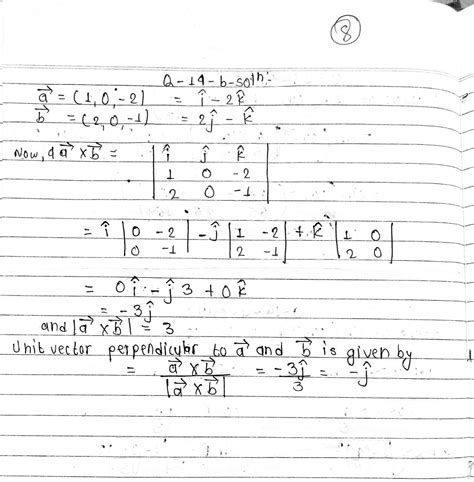 8
Q-14-b-soln:-
a⃗ = (1, 0, -2) = î - 2k̂
b⃗ = (2, 0, -1) = 2ĵ - k̂
Now, a⃗ × b⃗ = | î ĵ k̂ |
| 1 0 -2 |
| 2 0 -1 |
= î | 0 -2 | - ĵ | 1 -2 | + k̂ | 1 0 |
| 0 -1 | | 2 -1 | | 2 0 |
= 0î - ĵ3 + 0k̂
= -3ĵ
and |a⃗ × b⃗| = 3
Unit vector perpendicular to a⃗ and b⃗ is given by
= a⃗ × b⃗ / |a⃗ × b⃗| = -3ĵ / 3 = -ĵ